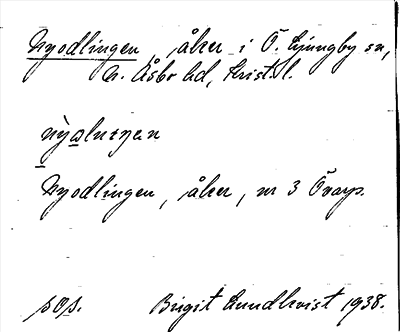 Nyodlingen, åker i Ö. Ljungby sn,
N. Åsbo hd, Krist. l.
Nyodlingen, åker, nr 3 Övarp.
Birgit Lundkvist 1938.